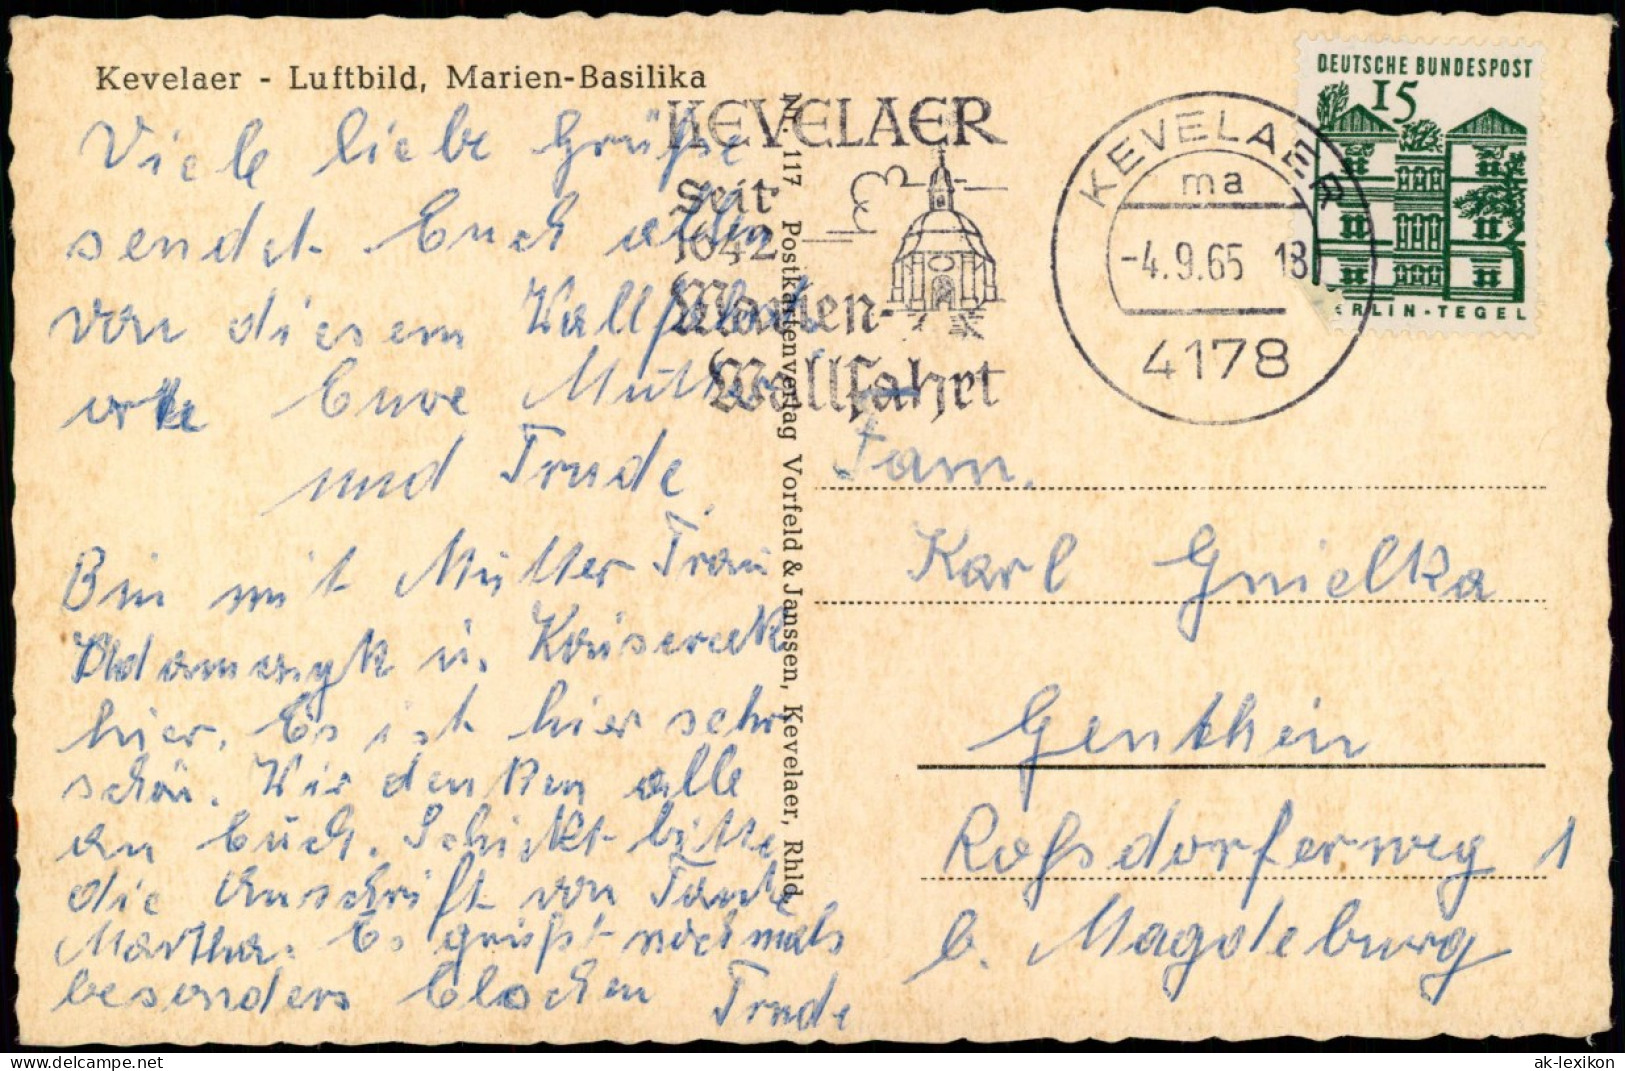 Kevelaer - Luftbild, Marien-Basilika
Viele liebe Grüße
sendet Euch allen
von diesem Wallfahrts
orte Eure Mutter
und Trude.
Bin mit Mutter Frau
Adamczyk u. Kaisereck
hier. Es ist hier sehr
schön. Wir denken alle
an Euch. Schickt bitte
die Anschrift von Tante
Martha. Es grüßt nochmals
besonders Trude
Nr. 117 Postkartenverlag Vorfeld & Janssen, Kevelaer, Rhld.
KEVELAER
Seit
1642
Marien-
Wallfahrt
KEVELAER
ma
-4.9.65 18
4178
DEUTSCHE BUNDESPOST
15
BERLIN-TEGEL
Fam.
Karl Gnielka
Genthin
Roßdorferweg 1
b. Magdeburg
www.delcampe.net
ak-lexikon